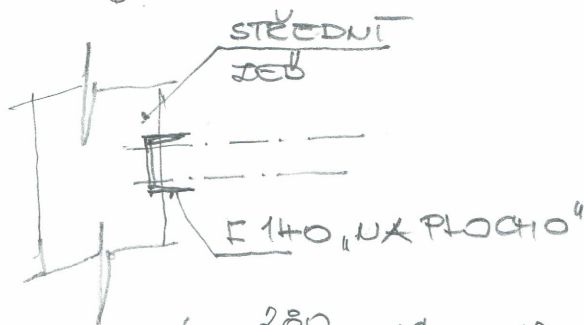 STŘEDNÍ
ZEĎ
[ 140 „NA PLOCHO“